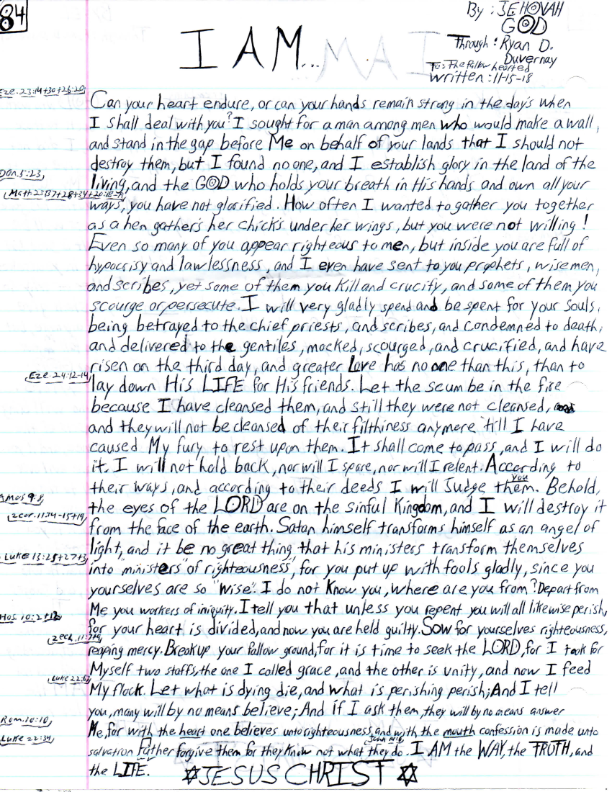 84
By: JEHOVAH
GOD
I AM...
Through: Ryan D.
Duvernay
For The Fallow hearted
Written: 11-15-18
Can your heart endure, or can your hands remain strong in the days when
I shall deal with you? I sought for a man among men who would make a wall,
and stand in the gap before Me on behalf of your lands that I should not
Dan. 5:23
destroy them, but I found no one, and I establish glory in the land of the
living, and the GOD who holds your breath in His hands and own all your
ways, you have not glorified. How often I wanted to gather you together
as a hen gathers her chicks under her wings, but you were not willing!
Even so many of you appear righteous to men, but inside you are full of
hypocrisy and lawlessness, and I even have sent to you prophets, wise men,
and scribes, yet some of them you kill and crucify, and some of them you
scourge or persecute. I will very gladly spend and be spent for your souls,
being betrayed to the chief priests, and scribes, and condemned to death,
and delivered to the gentiles, mocked, scourged, and crucified, and have
Eze. 24:12-14
risen on the third day, and greater Love has no one than this, than to
lay down His LIFE for His friends. Let the scum be in the fire
because I have cleansed them, and still they were not cleansed,
and they will not be cleansed of their filthiness anymore 'till I have
caused My fury to rest upon them. It shall come to pass, and I will do
it. I will not hold back, nor will I spare, nor will I relent. According to
their ways, and according to their deeds I will Judge them. Behold,
you
Amos 9:8
the eyes of the LORD are on the sinful Kingdom, and I will destroy it
from the face of the earth. Satan himself transforms himself as an angel of
light, and it be no great thing that his ministers transform themselves
into ministers of righteousness, for you put up with fools gladly, since you
yourselves are so "wise". I do not Know you, where are you from? Depart from
Me you workers of iniquity. I tell you that unless you repent you will all likewise perish,
for your heart is divided, and now you are held guilty. Sow for yourselves righteousness,
reaping mercy. Break up your fallow ground, for it is time to seek the LORD, for I took for
Myself two staffs, the one I called grace, and the other is unity, and now I feed
My flock. Let what is dying die, and what is perishing perish; And I tell
you, many will by no means believe; And if I ask them, they will by no means answer
Rom. 10:10
Me, for with the heart one believes unto righteousness, and with the mouth confession is made unto
salvation Father forgive them for they know not what they do. I AM the WAY, the TRUTH, and
the LIFE.
JESUS CHRIST